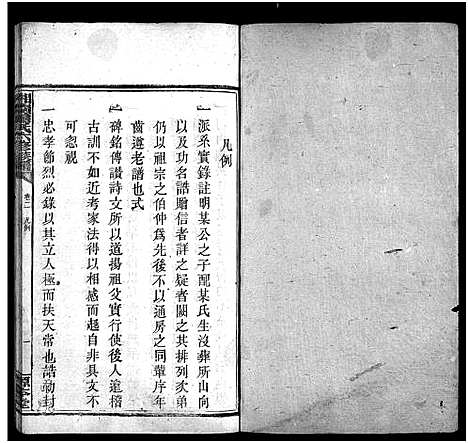 凡例
一派系實錄註明某公之子配某氏生沒葬所山向
以及功名誥贈信者詳之疑者闕之其排列次弟
仍以祖宗之伯仲爲先後不以通房之同輩序年
齒遵老譜也式
一碑銘傳讃詩文所以道揚祖父實行使後人遠稽
古訓不如近考家法得以相感而起自非具文不
可忽視
一忠孝節烈必錄以其立人極而扶天常也誥勅封
卷一 凡例